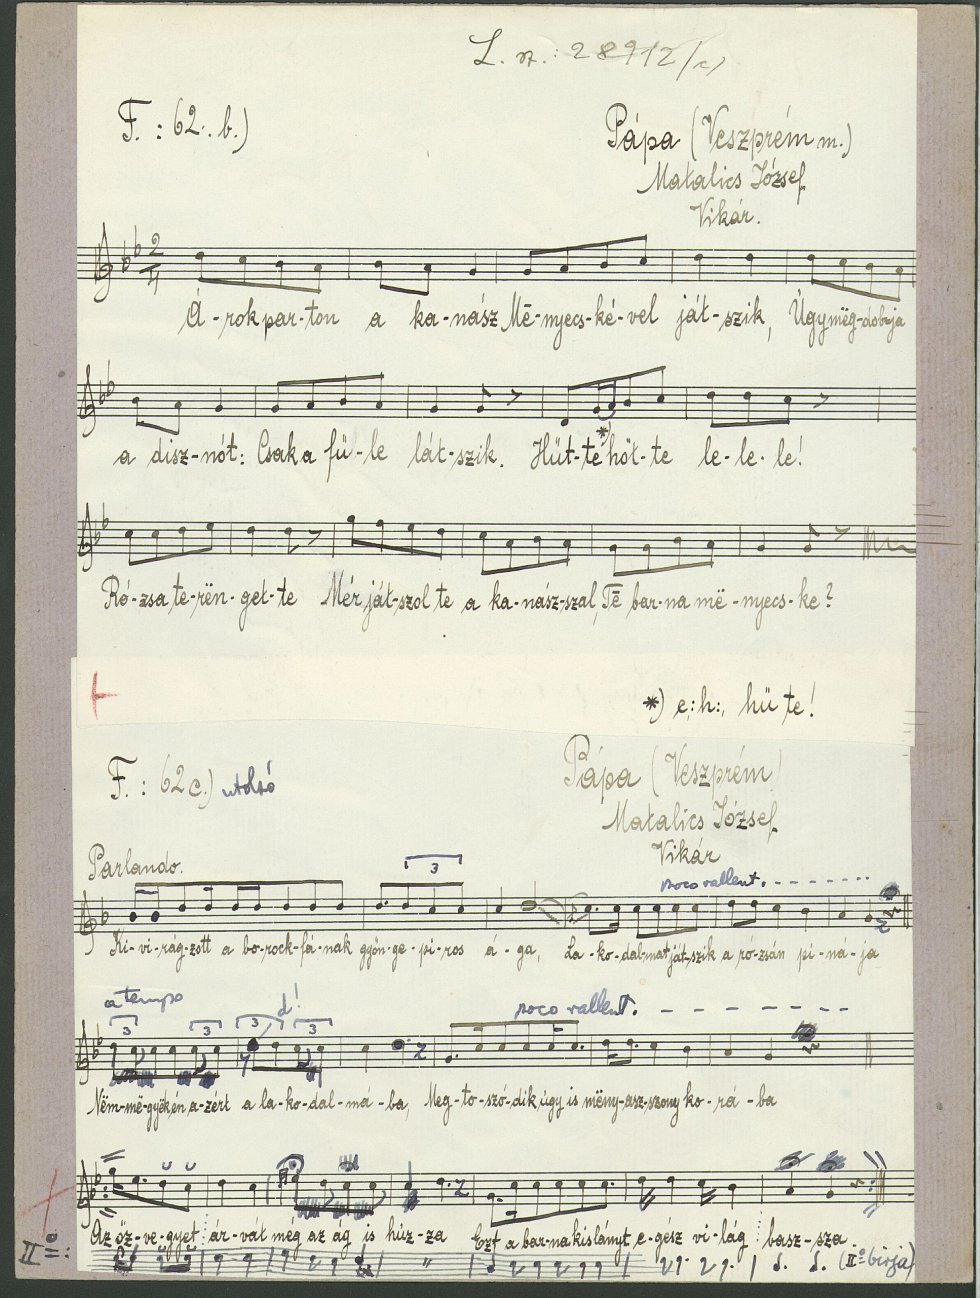 L. sz.: 28912/c)
F. : 62. b.)
Pápa (Veszprém m.)
Matalics József
Vikár.
2
4
Á-rok par-ton a ka-nász Mē-nyecs-ké-vel ját-szik, Úgy mëg-dob-ja
a disz-nót: Csak a fü-le lát-szik. Hüt-te höt-te le-le-le!
*
Ró-zsa te-rën-get-te Mér ját-szol te a ka-nász-szal, Tē bar-na më-nyecs-ke?
*) e.:h:, hü te!
F. : 62 c.) utolsó
Pápa (Veszprém)
Matalics József
Vikár
Parlando.
3
poco rallent. - - - - - - -
Ki-vi-rág-zott a bo-rock-fá-nak gyön-ge-pi-ros á-ga, La-ko-dal-mat ját-szik a ró-zsán pi-ná-ja
a tempo
3 3 3 d! 3
poco rallent. - - - - - -
Nëm-më-gyëk én a-zért a la-ko-dal-má-ba, Meg-to-szó-dik, úgy is mëny-asz-szony ko-rá-ba
Az öz-ve-gyet ár-vát még az ág is húz-za Ezt a bar-na kislányt e-gész vi-lág basz-sza.
IIº:
(IIº birja)